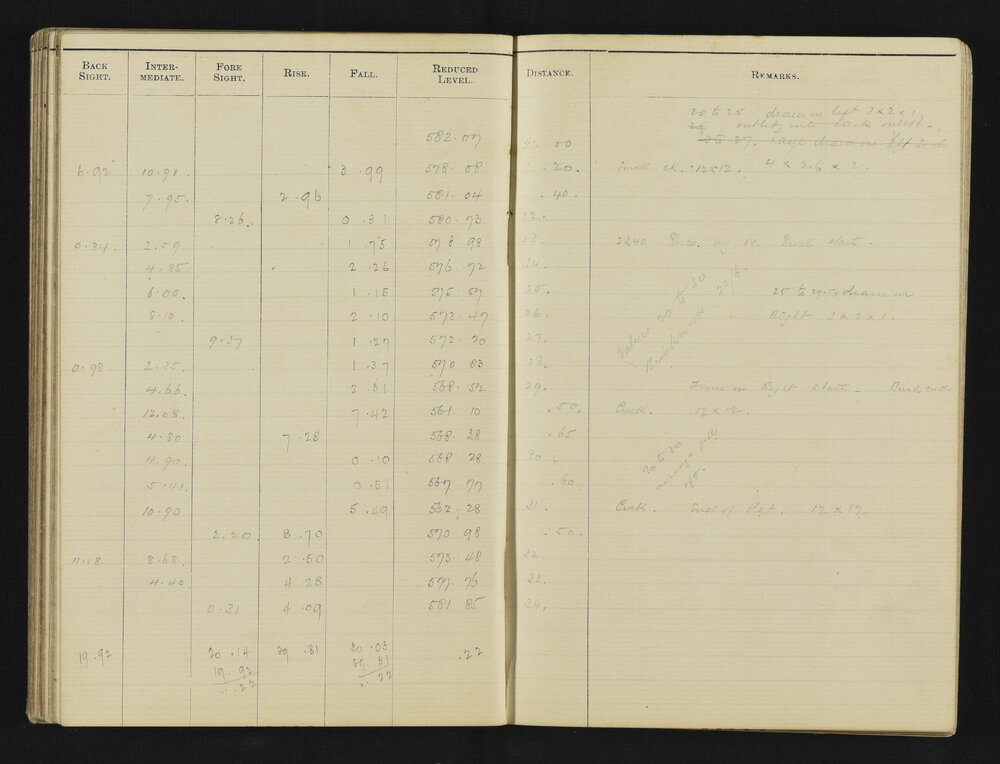 BACK SIGHT. INTER-MEDIATE. FORE SIGHT. RISE. FALL. REDUCED LEVEL. DISTANCE. REMARKS.
20 to 25 drain on left 3 x 2 x 1
outlets into creek on left.
582.07 21.00
6.92 10.91 3.99 578.08 .20. Small ck. 12x12. 4 x 2.6 x 2.
7.95. 2.96 581.04 .40.
8.26. 0.31 580.73 22.
0.84. 2.59 1.75 578.98 23. 2340 Bush start.
4.85 2.26 576.72 24.
6.00. 1.15 575.57 25. 25 to 29.50 drain on
8.10. 2.10 573.47 26. Right 3 x 2 x 1.
9.37 1.27 572.20 27.
0.98. 2.35. 1.37 570.83 28.
4.66. 2.31 568.52 29. Fence on Right start. Bush ends
12.08. 7.42 561.10 .50. Creek. 12 x 12.
4.80 7.28 568.38 .65
4.90. 0.10 568.28 30.
5.41. 0.51 567.77 .60
10.90 5.49 562.28 31. Creek. End of flat. 12 x 12
2.20. 8.70 570.98 .50.
11.18 8.68. 2.50 573.48 32.
4.40 4.28 577.76 33.
0.31 4.09 581.85 34.
19.92 20.14 29.81 30.03 .22
19.92 29.81
.22 .22